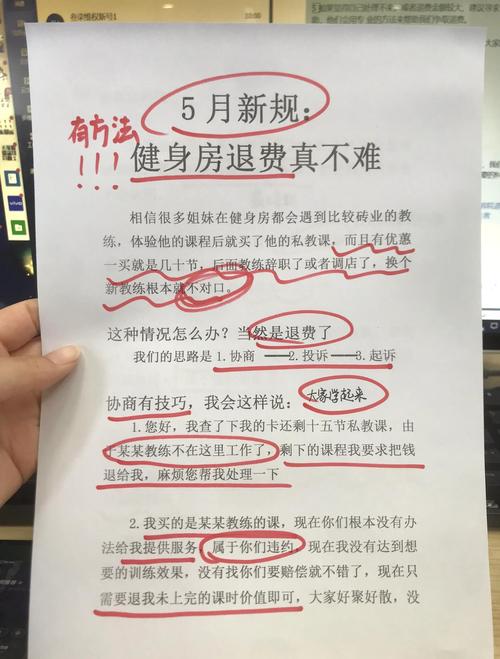 叁柒维权新号1
10:00
5月新规：
有方法
！！！
健身房退费真不难
相信很多姐妹在健身房都会遇到比较砖业的教
练，体验他的课程后就买了他的私教课，而且有优惠
一买就是几十节，后面教练辞职了或者调店了，换个
新教练根本就不对口。
这种情况怎么办？当然是退费了
我们的思路是 1.协商 ——2.投诉——3.起诉
协商有技巧，我会这样说：
大家学起来
1.您好，我查了下我的卡还剩十五节私教课，由
于某某教练不在这里工作了，剩下的课程我要求把钱
退给我，麻烦您帮我处理一下
2.我买的是某某教练的课，现在你们根本没有办
法给我提供服务，属于你们违约，现在我没有达到想
要的训练效果，没有找你们要赔偿就不错了，现在只
需要退我未上完的课时价值即可，大家好聚好散，没